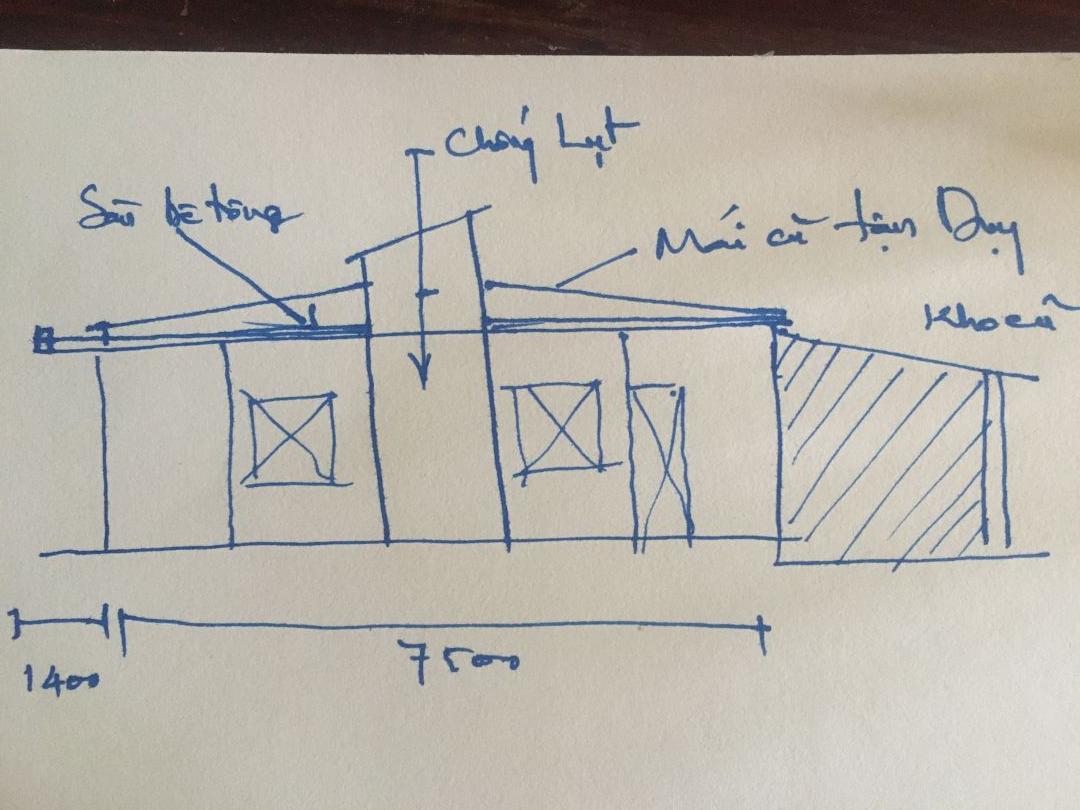 Chống Lụt
Sàn bê tông
Mái cũ tận Dụng
Kho cũ
1400
7500